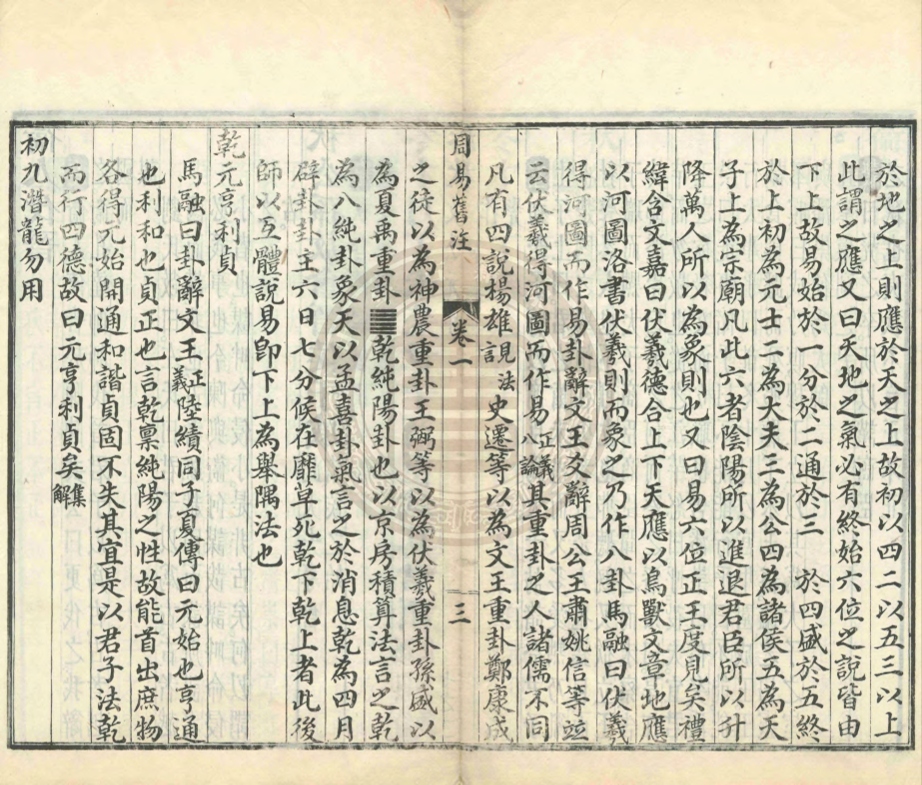 於地之上則應於天之上故初以四二以五三以上
此謂之應又曰天地之氣必有終始六位之說皆由
下上故易始於一分於二通於三 於四盛於五終
於上初為元士二為大夫三為公四為諸侯五為天
子上為宗廟凡此六者陰陽所以進退君臣所以升
降萬人所以為象則也又曰易六位正王度見矣禮
緯含文嘉曰伏羲德合上下天應以鳥獸文章地應
以河圖洛書伏羲則而象之乃作八卦馬融曰伏羲
得河圖而作易卦辭文王爻辭周公王肅姚信等竝
云伏羲得河圖而作易正義八論其重卦之人諸儒不同
凡有四說楊雄說法史遷等以為文王重卦鄭康成
周易舊注 卷一 三
之徒以為神農重卦王弼等以為伏羲重卦孫盛以
為夏禹重卦䷀乾純陽卦也以京房積算法言之乾
為八純卦象天以孟喜卦氣言之於消息乾為四月
辟卦卦主六日七分候在靡草死乾下乾上者此後
師以互體說易卽下上為舉隅法也
乾元亨利貞
馬融曰卦辭文王正義陸績同子夏傳曰元始也亨通
也利和也貞正也言乾稟純陽之性故能首出庶物
各得元始開通和諧貞固不失其宜是以君子法乾
而行四德故曰元亨利貞矣集解
初九潛龍勿用